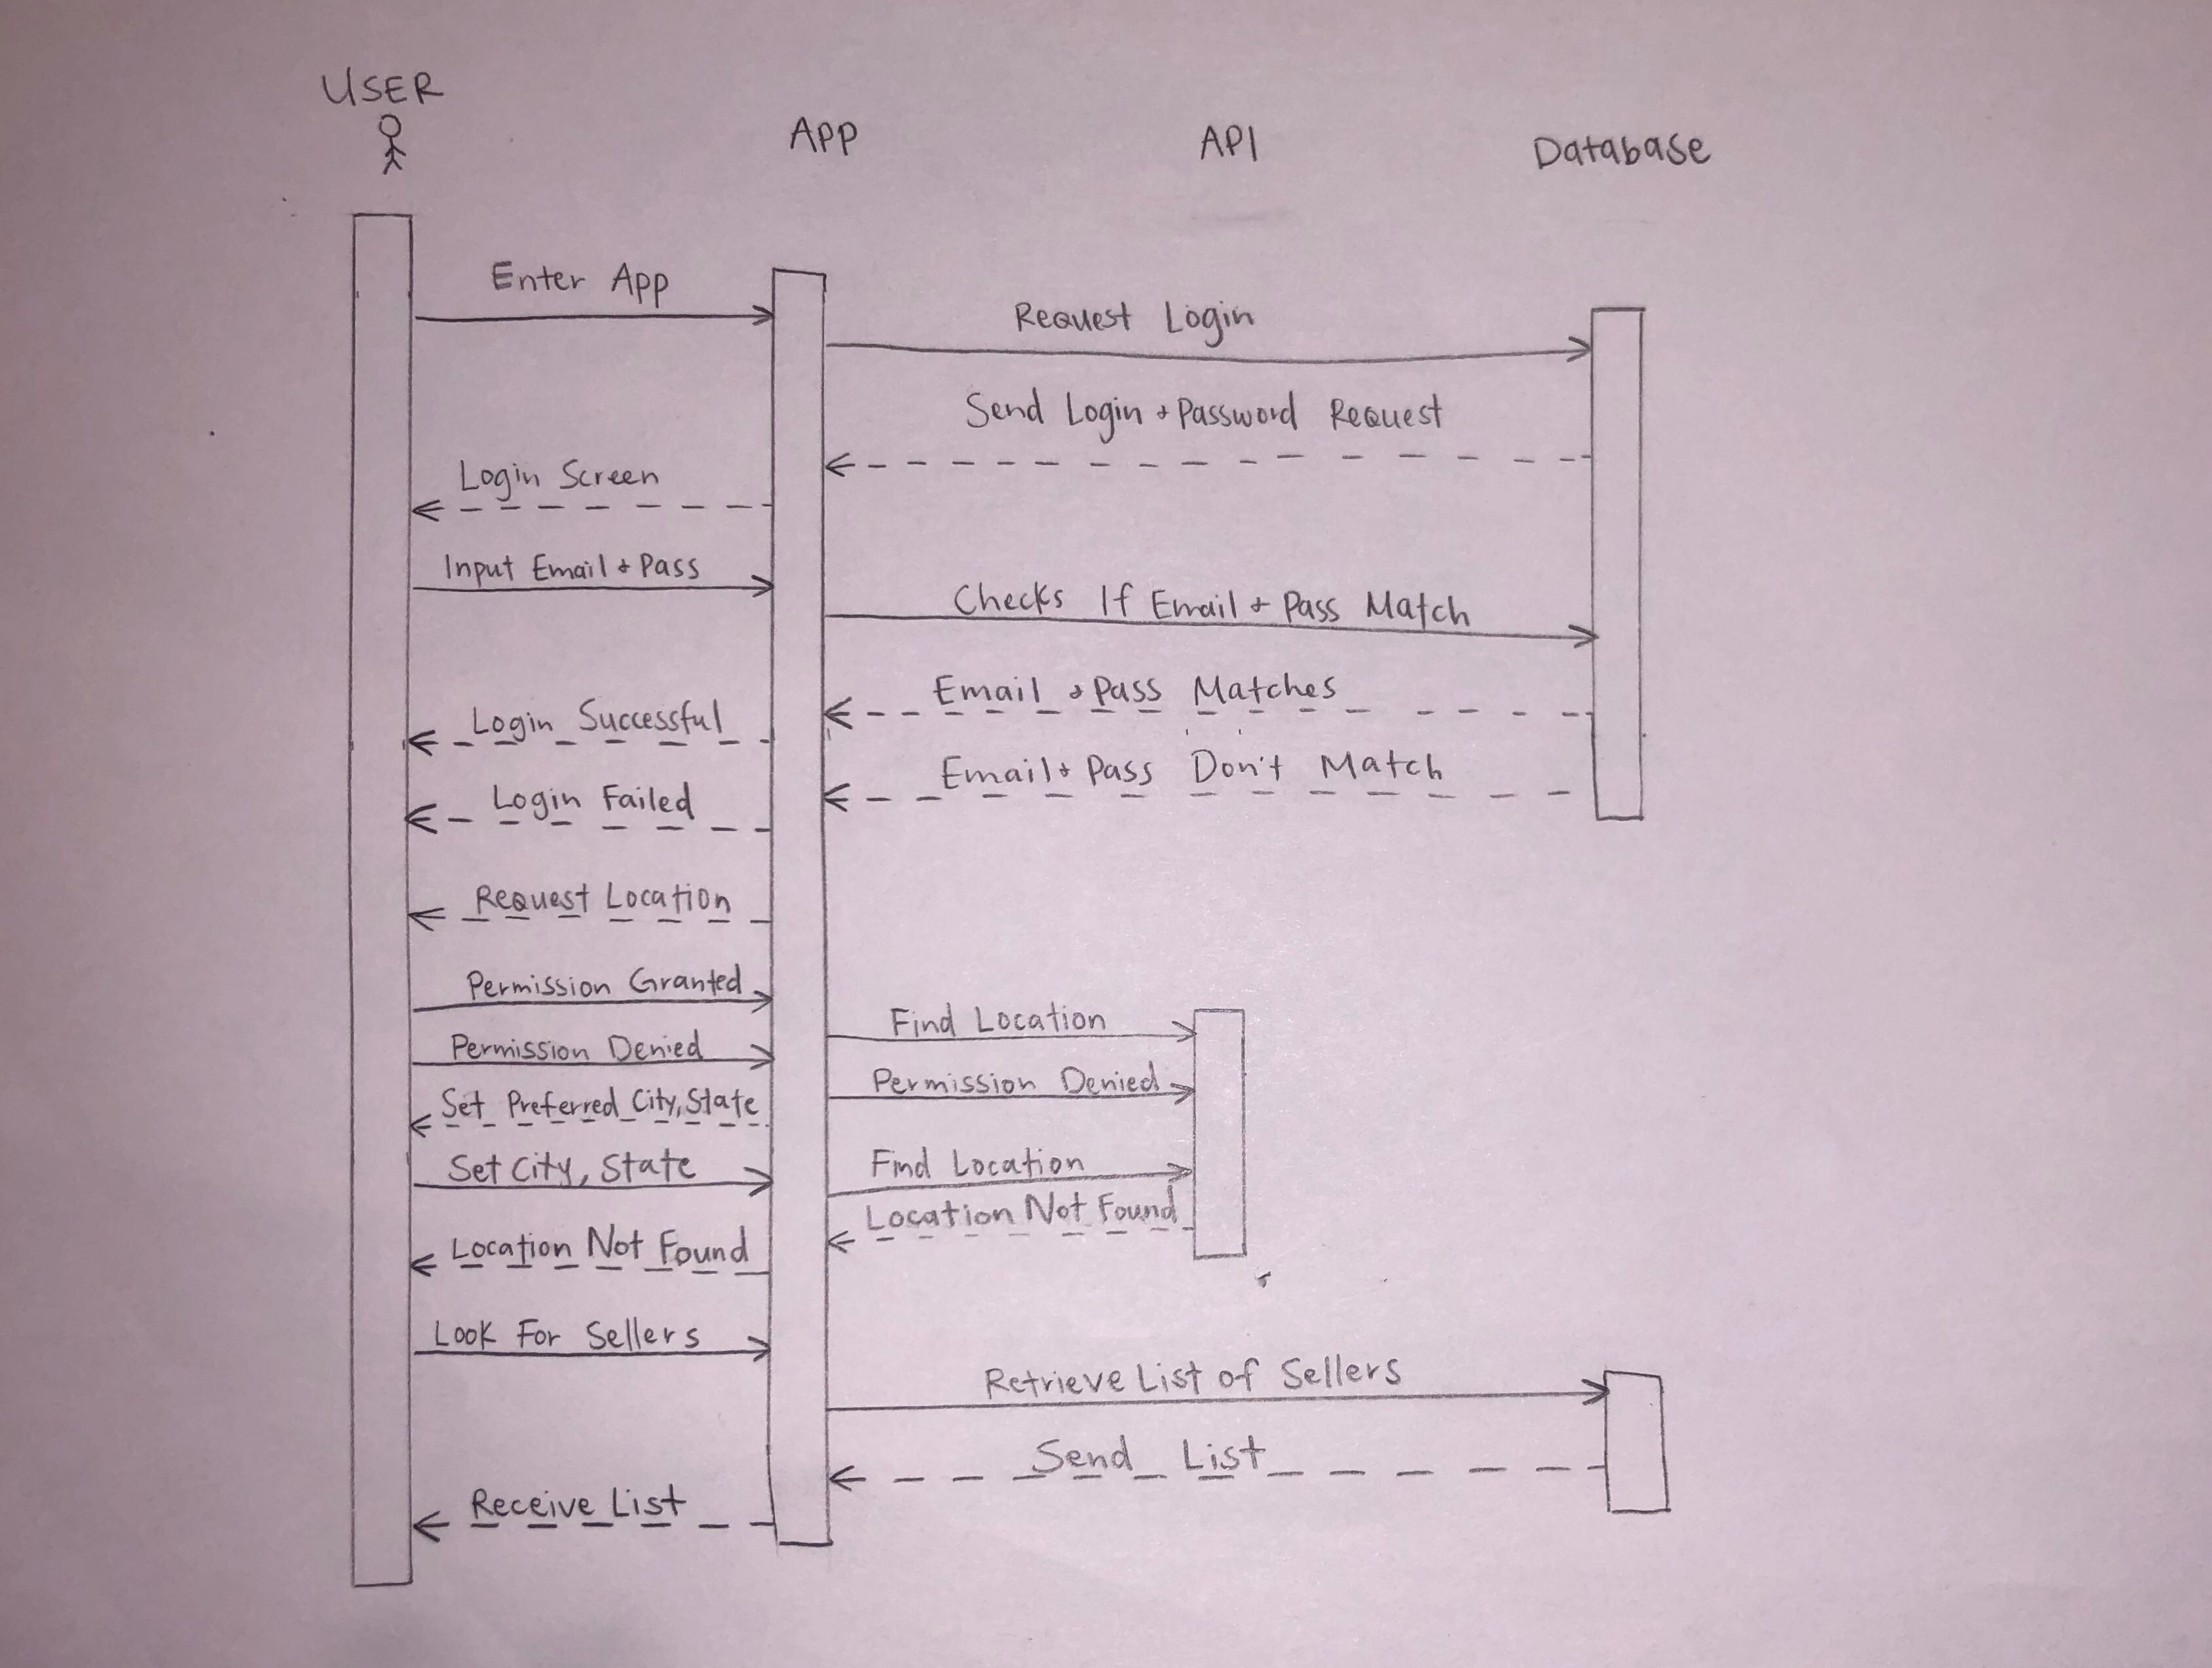 USER
App
API
Database
Enter App
Request Login
Send Login + Password Request
Login Screen
Input Email + Pass
Checks If Email + Pass Match
Email + Pass Matches
Login Successful
Email + Pass Don't Match
Login Failed
Request Location
Permission Granted
Find Location
Permission Denied
Permission Denied
Set Preferred City, State
Set City, State
Find Location
Location Not Found
Location Not Found
Look For Sellers
Retrieve List of Sellers
Send List
Receive List